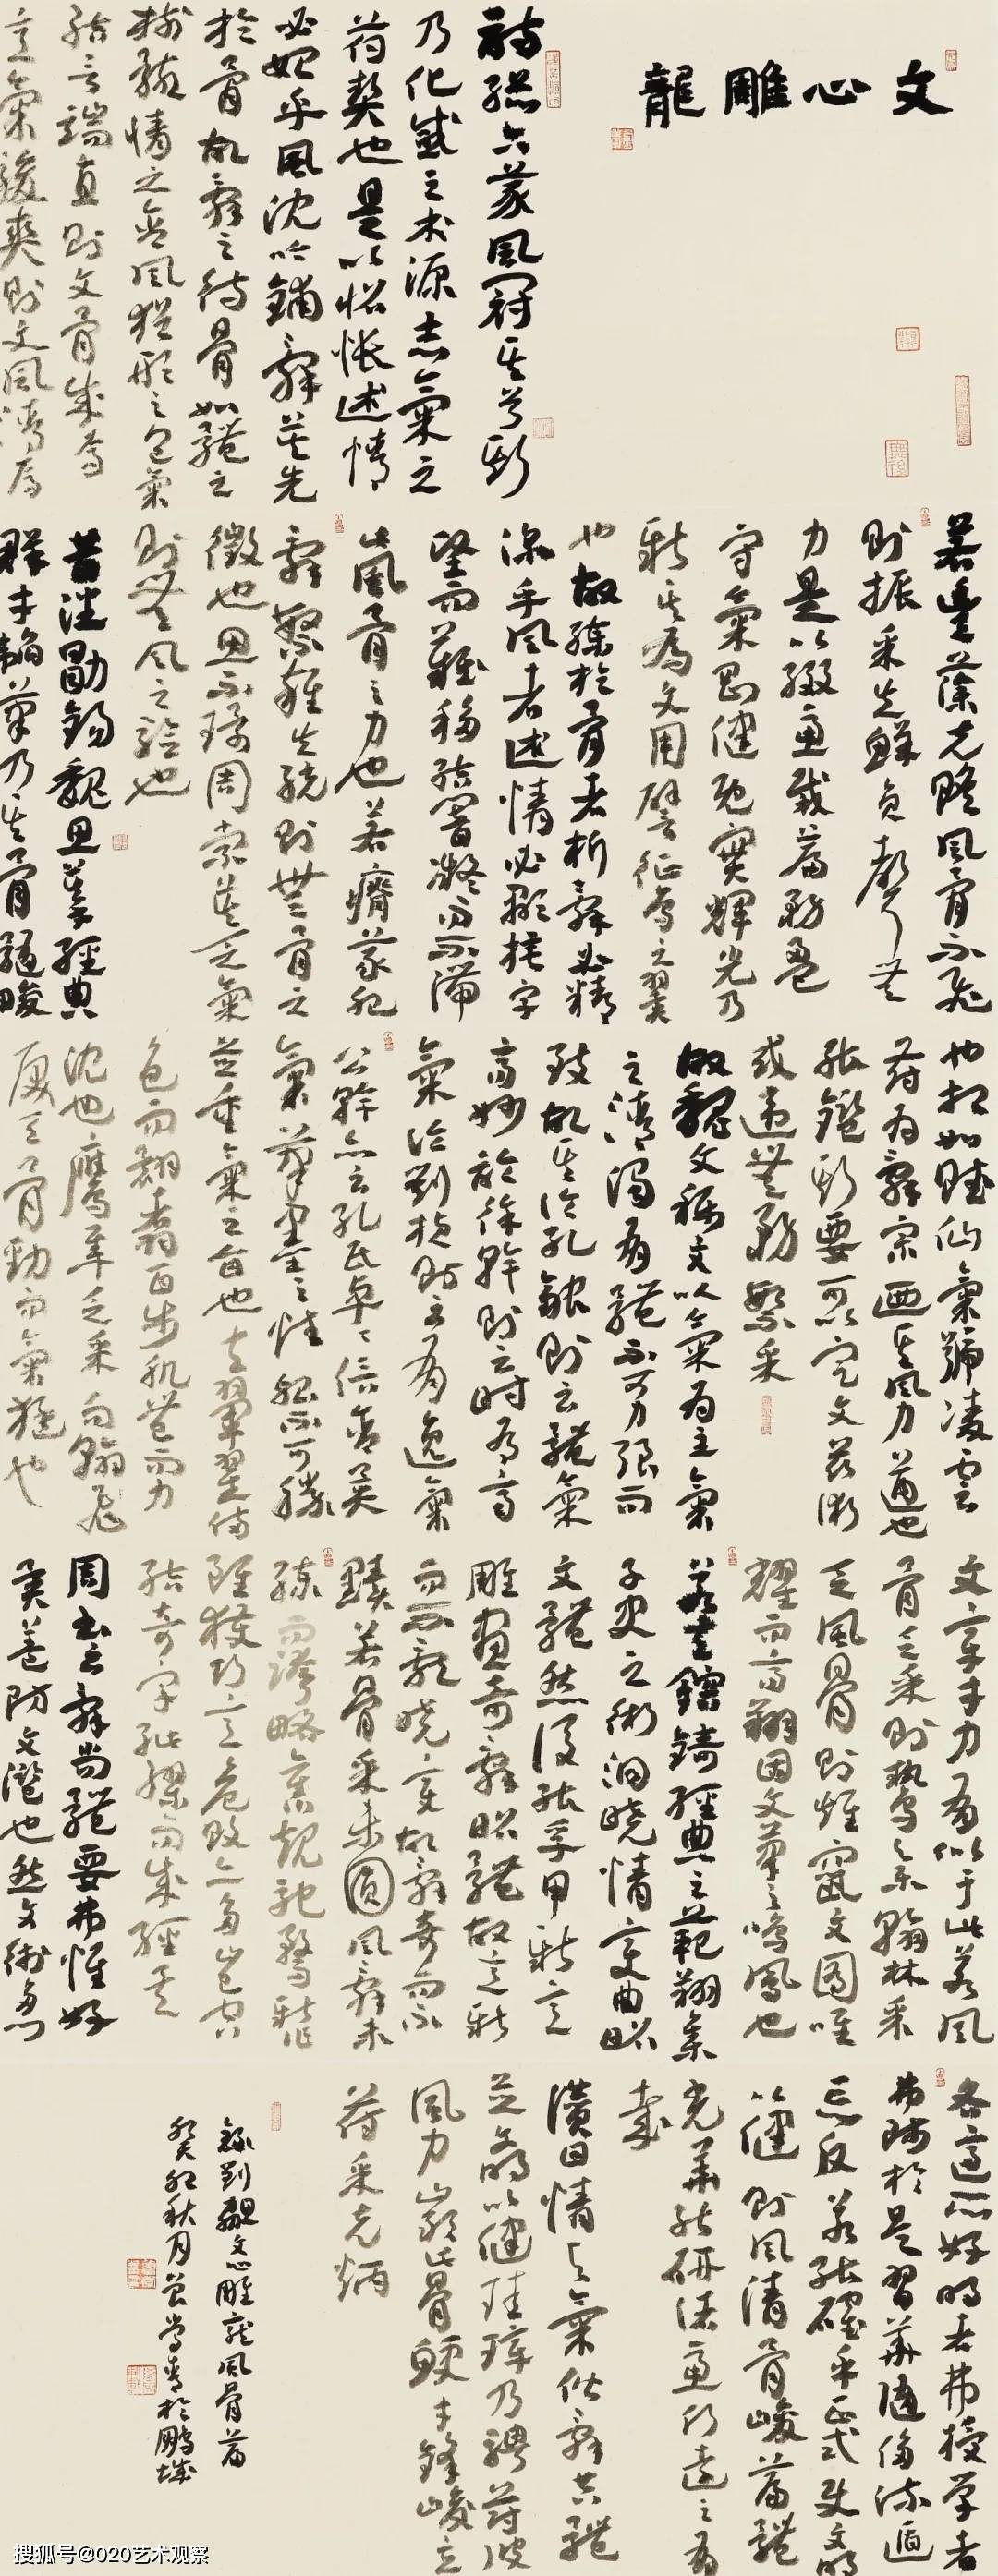 文心雕龍
詩總六義風冠其首斯
乃化感之本源志氣之
符契也是以怊悵述情
必始乎風沈吟鋪辭莫先
於骨故辭之待骨如體之
樹骸情之含風猶形之包氣
結言端直則文骨成焉
意氣駿爽則文風清焉
若豐藻克贍風骨不飛
則振采失鮮負聲無
力是以綴慮裁篇務盈
守氣剛健既實輝光乃
新其為文用譬征鳥之翼
也故練於骨者析辭必精
深乎風者述情必顯捶字
堅而難移結響凝而不滯
此風骨之力也若瘠義肥
辭繁雜失統則無骨之
徵也思不環周索莫乏氣
則無風之驗也
昔潘勖錫魏思摹經典
群才韜筆乃其骨髓畯
也相如賦仙氣號凌雲
蔚為辭宗迺其風力遒也
能鑒斯要可以定文茲術
或違無務繁采
故魏文稱文以氣為主氣
之清濁有體不可力強而
致故其論孔融則云體氣
高妙論徐幹則云時有齊
氣論劉楨則云有逸氣
公幹亦云孔氏卓卓信含異
氣筆墨之性殆不可勝
並重氣之旨也夫翬翟備
色而翾翥百步肌豐而力
沈也鷹隼乏采而翰飛
戾天骨勁而氣猛也
文章才力有似于此若風
骨乏采則鷙集翰林采
乏風骨則雉竄文囿唯
耀而高翔固文筆之鳴鳳也
若夫鎔鑄經典之範翔集
子史之術洞曉情變曲昭
文體然後能孚甲新意
雕畫奇辭昭體故意新
而不亂曉變故辭奇而不
黷若骨采未圓風辭未
練而跨略舊規馳騖新作
雖獲巧意危敗亦多豈空
結奇字紕繆而成經矣
周書云辭尚體要弗惟好
異蓋防文濫也然文術多
各適所好明者弗授學者
弗師於是習華隨侈流遁
忘反若能確乎正式使文明
以健則風清骨峻篇體
光華能研諸慮何遠之有
哉
讚曰情與氣偕辭共體
並文明以健珪璋乃騁蔚彼
風力嚴此骨鯁才鋒峻立
符采克炳
錄劉勰文心雕龍風骨篇
癸卯秋月於鵬城
搜狐号@020艺术观察